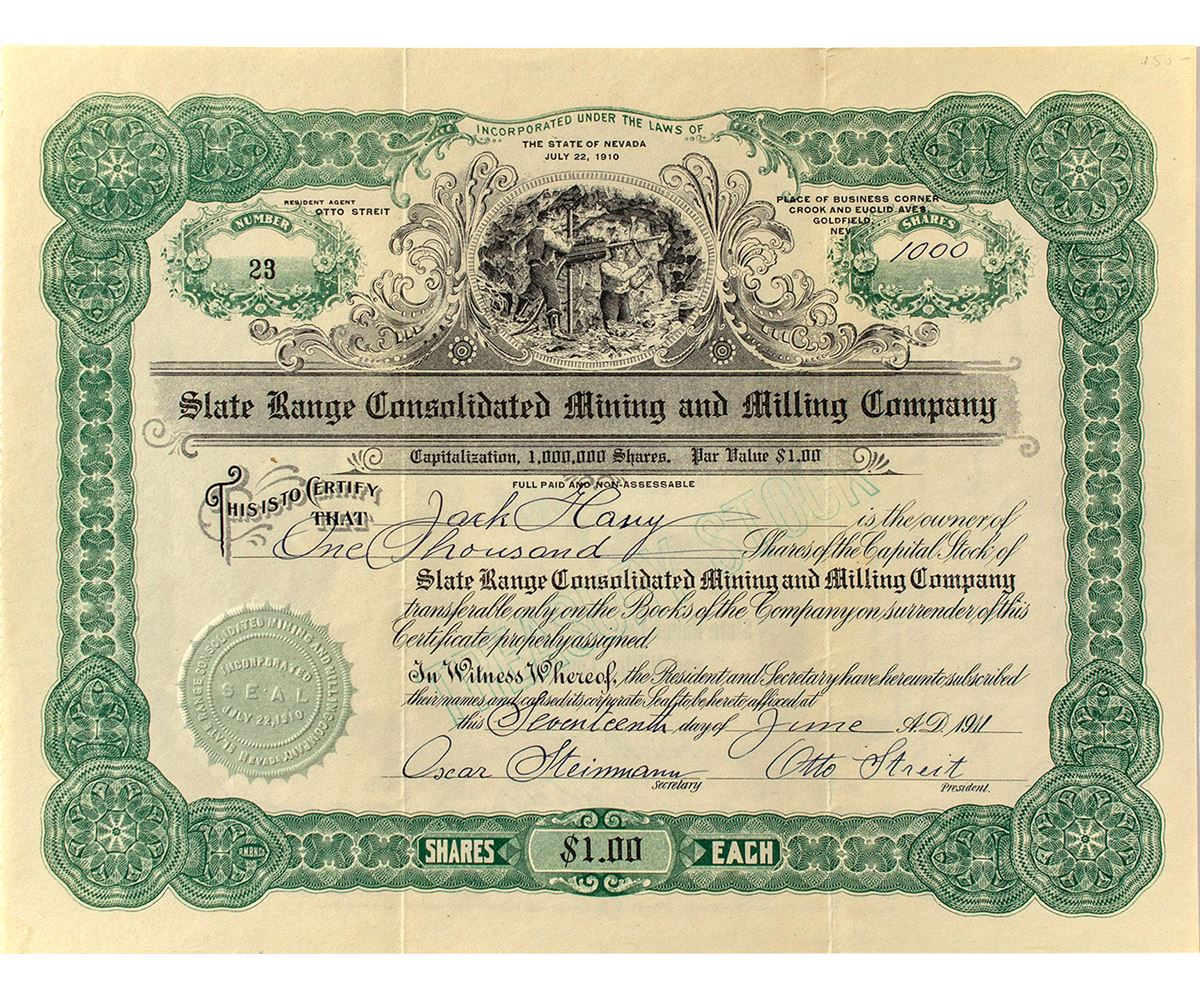 150-
INCORPORATED UNDER THE LAWS OF
THE STATE OF NEVADA
JULY 22, 1910
RESIDENT AGENT
OTTO STREIT
PLACE OF BUSINESS CORNER
CROOK AND EUCLID AVES
GOLDFIELD,
NEV
NUMBER
23
SHARES
1000
Slate Range Consolidated Mining and Milling Company
Capitalization, 1,000,000 Shares. Par Value $1.00
FULL PAID AND NON-ASSESSABLE
THIS IS TO CERTIFY
THAT Jack Hany is the owner of
One Thousand Shares of the Capital Stock of
Slate Range Consolidated Mining and Milling Company
transferable only on the Books of the Company on surrender of this
Certificate properly assigned.
In Witness Whereof, the President and Secretary have hereunto subscribed
their names and caused its corporate Seal to be hereto affixed at
this Seventeenth day of June A.D. 1911
Oscar Steinmann Otto Streit
Secretary President.
TREASURY STOCK
SLATE RANGE CONSOLIDATED MINING AND MILLING COMPANY
NEVADA
INCORPORATED
SEAL
JULY 22, 1910
SHARES $1.00 EACH